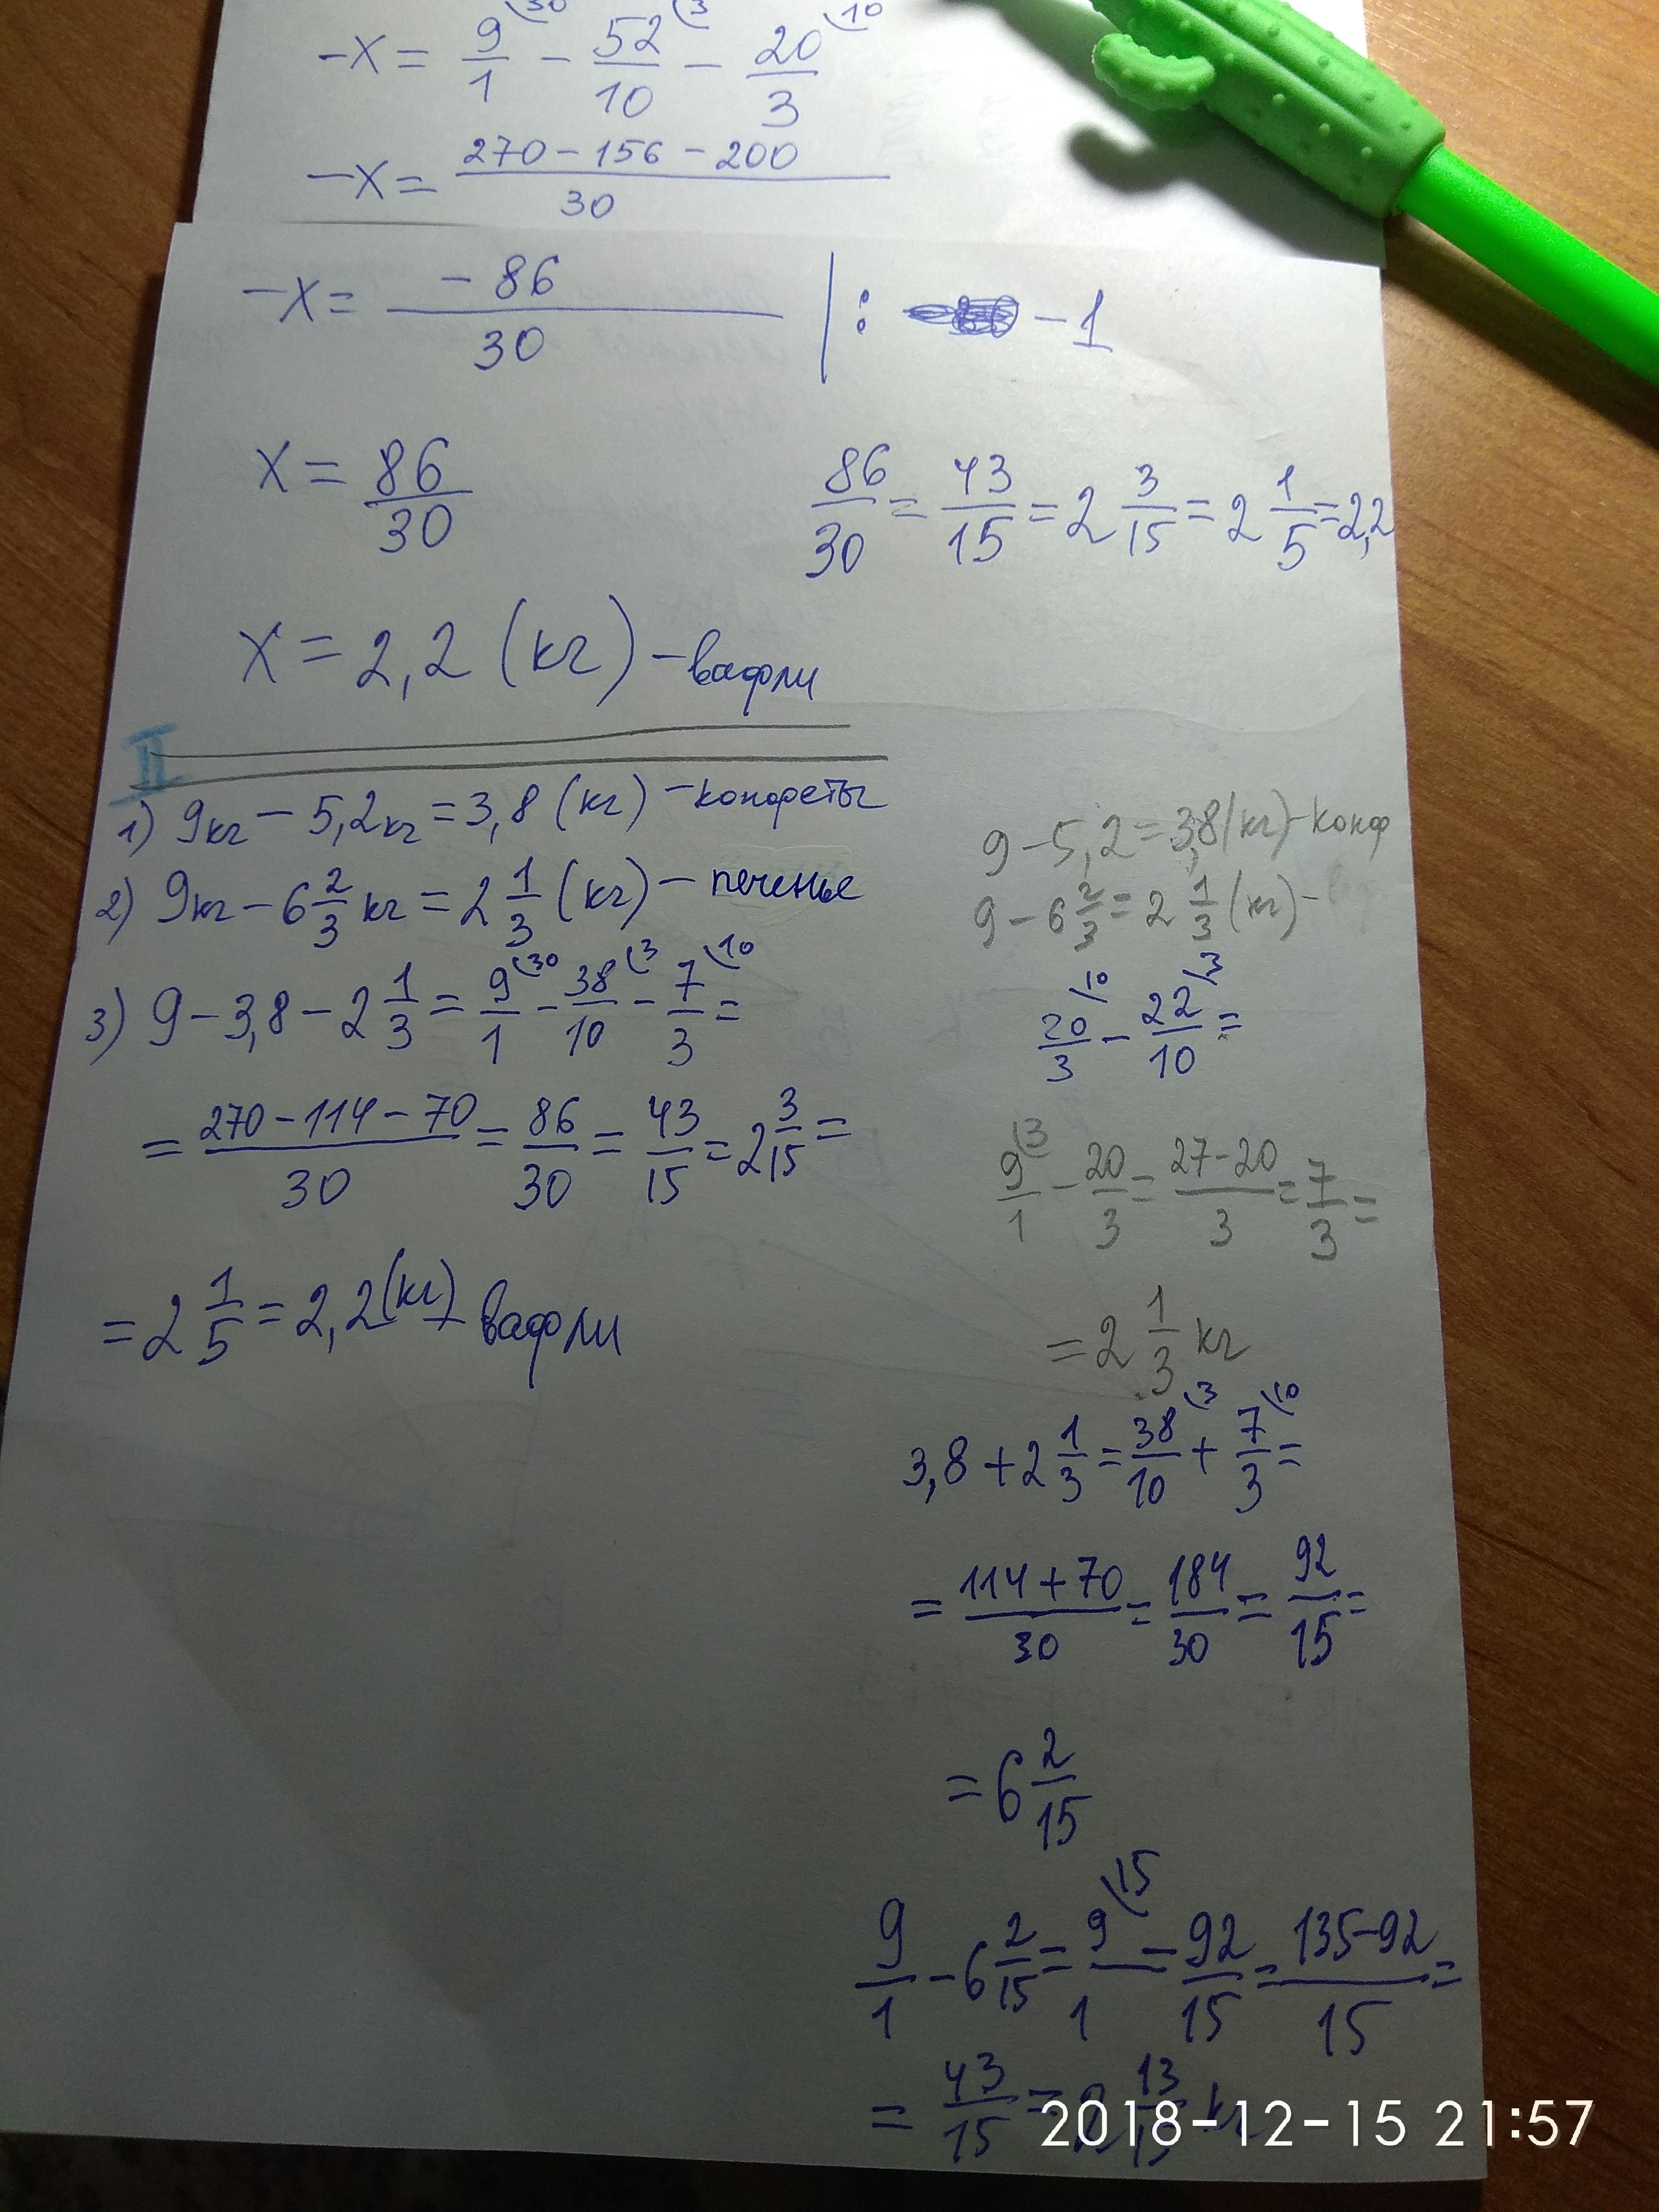 -x = 9/1 (30 - 52/10 (3 - 20/3 (10
-x = (270-156-200)/30
-x = -86/30 | : -1
x = 86/30
86/30 = 43/15 = 2 3/15 = 2 1/5 = 2,2
x = 2,2 (кг) - вафли
II
1) 9кг - 5,2кг = 3,8 (кг) - конфеты
2) 9кг - 6 2/3 кг = 2 1/3 (кг) - печенье
3) 9 - 3,8 - 2 1/3 = 9/1 (30 - 38/10 (3 - 7/3 (10 =
= (270-114-70)/30 = 86/30 = 43/15 = 2 3/15 =
= 2 1/5 = 2,2 (кг) - вафли
9 - 5,2 = 3,8 (кг) - конф
9 - 6 2/3 = 2 1/3 (кг) -
20/3 (10 - 22/10 (3 =
9/1 (3 - 20/3 = (27-20)/3 = 7/3 =
= 2 1/3 кг
3,8 + 2 1/3 = 38/10 (3 + 7/3 (10 =
= (114+70)/30 = 184/30 = 92/15 =
= 6 2/15
9/1 - 6 2/15 = 9/1 (15 - 92/15 = (135-92)/15 =
= 43/15 = 2 13/15 кг
2018-12-15 21:57